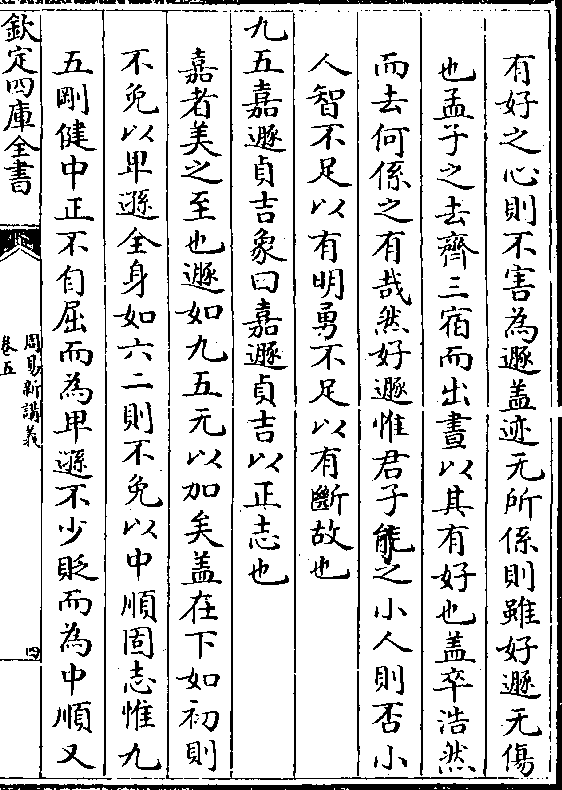 有好之心則不害為遯盖迹无所係則雖好遯无傷
也孟子之去齊三宿而出晝以其有好也盖卒浩然
而去何係之有哉然好遯惟君子能之小人則否小
人智不足以有明勇不足以有斷故也
九五嘉遯貞吉象曰嘉遯貞吉以正志也
嘉者美之至也遯如九五无以加矣盖在下如初則
不免以卑遜全身如六二則不免以中順固志惟九
五剛健中正不自屈而為卑遜不少貶而為中順又
欽定四庫全書
周易新講義
卷五
四